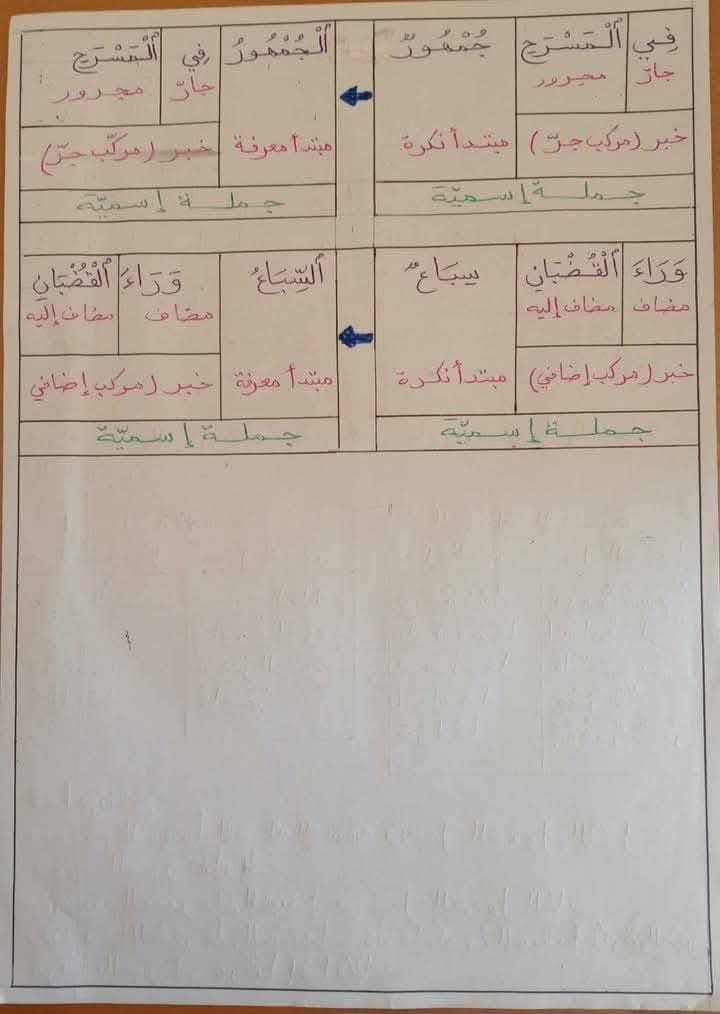 فِي ٱلْمَسْرَحِ جُمْهُورٌ
جارّ مجرور
خبر (مركب جرّ) مبتدأ نكرة
جملة إسميّة
ٱلْجُمْهُورُ فِي ٱلْمَسْرَحِ
جارّ مجرور
مبتدأ معرفة خبر (مركّب جرّ)
جملة إسميّة
وَرَاءَ ٱلْقُضْبَانِ سِبَاعٌ
مضاف مضاف إليه
خبر (مركب إضافي) مبتدأ نكرة
جملة إسميّة
ٱلسِّبَاعُ وَرَاءَ ٱلْقُضْبَانِ
مضاف مضاف إليه
مبتدأ معرفة خبر (مركب إضافي
جملة إسميّة